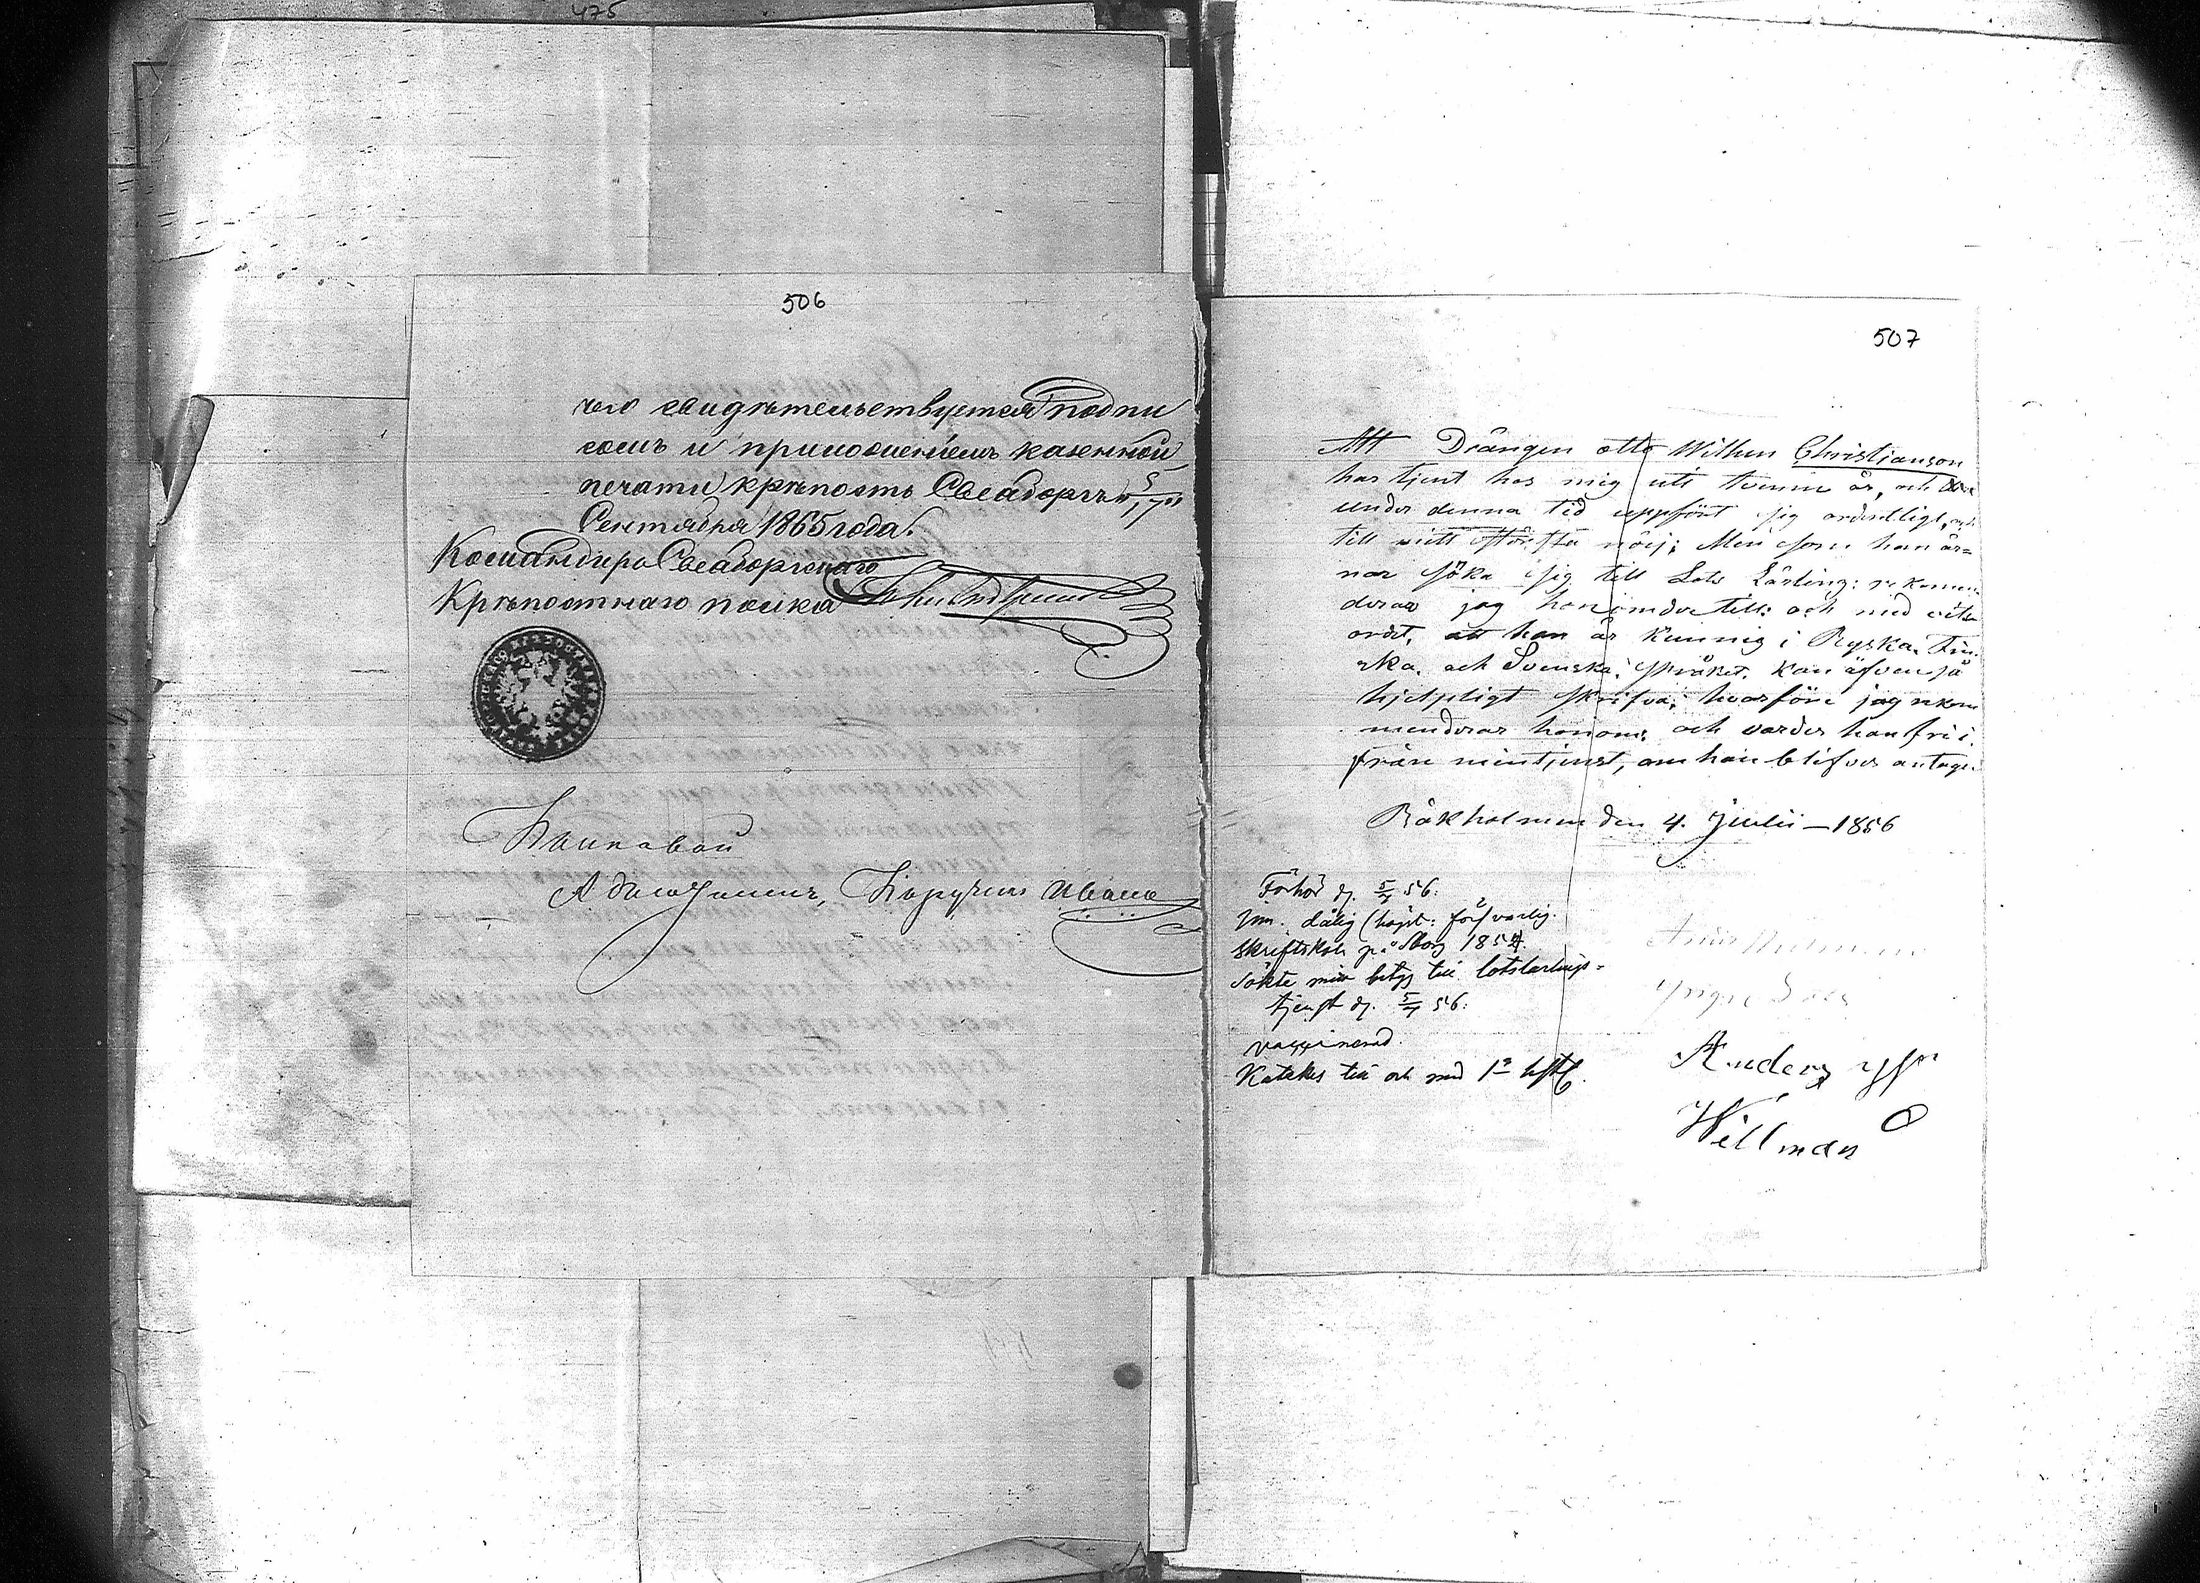 475
506
чего свидѣтельствуется подпи
сомъ и приложеніемъ казенной
печати, крѣпость Свеаборгъ
Сентября 1865 года.
Командиръ Свеаборгскаго
Крѣпостнаго полка
Полковой
Адъютантъ, Поручикъ
507
Att Drängen otto Wilhem Christjanson
har tjent hos mig uti tvenne år, och
under denna tid uppfört sig ordentligt, och
till mitt nöij; Men som han är=
nar söka sig till Lots Lärling: rekomen
derar jag honom dertill: och med vits
ordet, att han är kunnig i Ryska, Fin
ska, och Svenska, språket, kan äfven så
hjelpligt skrifva; hvarföre jag rekom
menderar honom: och varder han fri i
från min tjenst, om han blifver antagen
Båkholmen den 4. Julii — 1856
Förhör d. 5/7 56.
Inn. dålig (högst: försvarlig.
skriftskola på Sborg 1854.
Sökte min betyg till lotslärlings=
tjenst d. 5/7 56.
vaccinerad.
Katekes till och med 1a
Anders
Willman